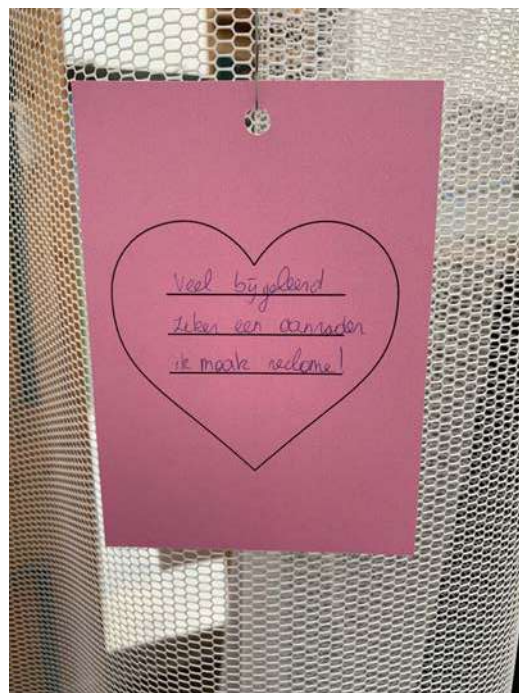 Veel bijgeleerd
Zeker een aanrader
ik maak reclame!